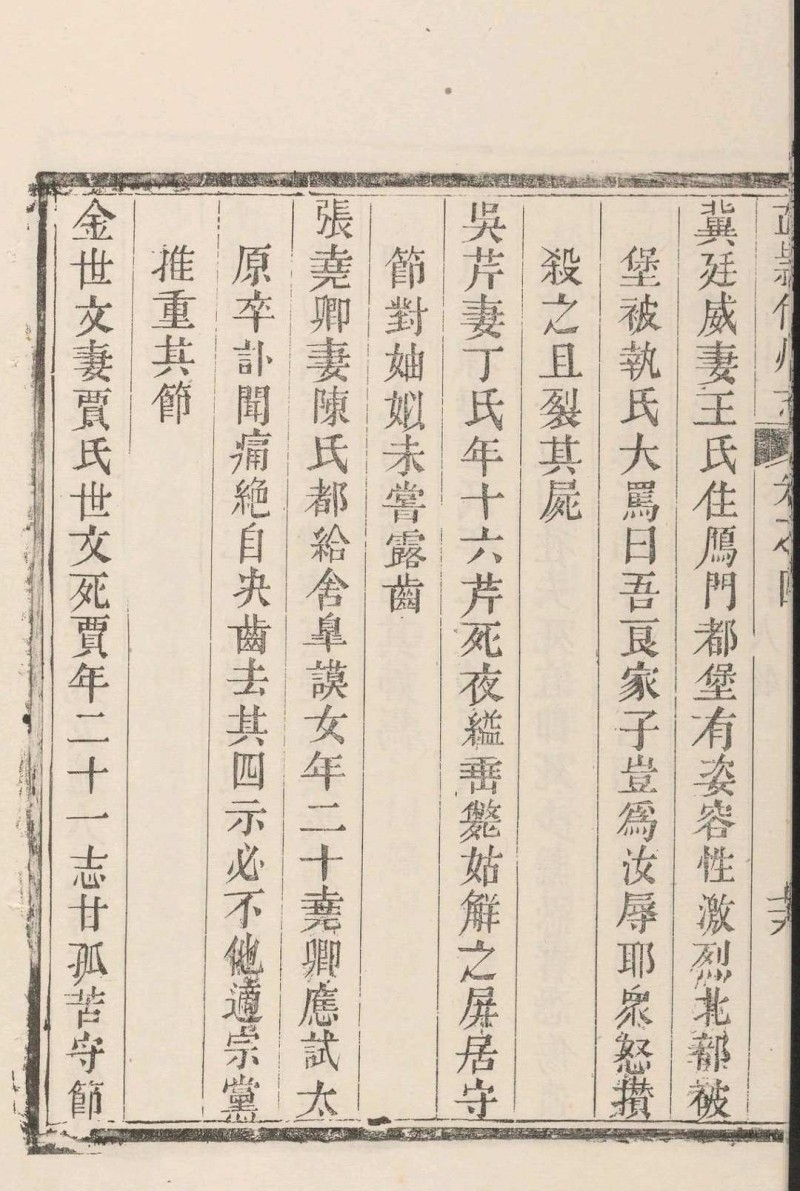 冀廷威妻王氏住鴈門都堡有姿容性激烈北部被
堡被執氏大罵曰吾良家子豈爲汝辱耶衆怒攅
殺之且裂其屍
吳芹妻丁氏年十六芹死夜縊垂斃姑解之屏居守
節對妯娰未嘗露齒
張堯卿妻陳氏都給舍皐謨女年二十堯卿應試太
原卒訃聞痛絶自夬齒去其四示必不他適宗黨
推重其節
金世文妻賈氏世文死賈年二十一志甘孤苦守節